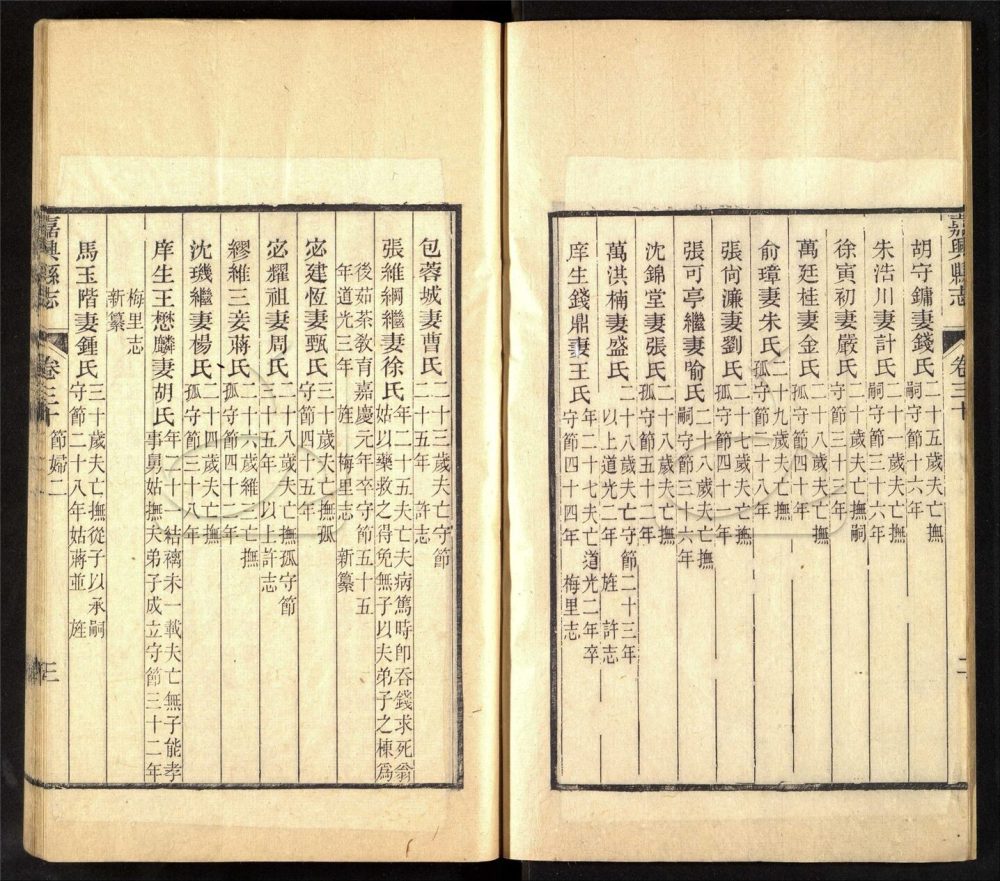 嘉興縣志
卷三十
二
胡守鏞妻錢氏二十五歲夫亡撫嗣守節十六年
朱浩川妻計氏二十一歲夫亡撫嗣守節三十六年
徐寅初妻嚴氏二十歲夫亡撫嗣守節三十三年
萬廷桂妻金氏二十八歲夫亡撫孤守節四十年
俞璋妻朱氏二十九歲夫亡撫孤守節二十八年
張尙濂妻劉氏二十七歲夫亡撫孤守節四十一年
張可亭繼妻喻氏二十八歲夫亡撫嗣守節三十六年
沈錦堂妻張氏二十八歲夫亡撫孤守節五十二年
萬洪楠妻盛氏二十八歲夫亡守節二十三年以上道光二年 旌 許志
庠生錢鼎妻王氏年二十七夫亡道光二年卒守節四十四年 梅里志
包蓉城妻曹氏二十三歲夫亡守節二十五年 許志
張維綱繼妻徐氏年二十五夫亡夫病篤時卽吞錢求死翁姑以藥救之得免無子以夫弟子之棟爲
後茹荼敎育嘉慶元年卒守節五十五年道光三年 旌 梅里志 新纂
宓建恆妻甄氏三十歲夫亡撫孤守節四十五年
宓耀祖妻周氏二十八歲夫亡撫孤守節三十五年 以上許志
繆維三妾蔣氏二十六歲維三亡撫孤守節四十二年
沈璣繼妻楊氏二十四歲夫亡撫孤守節三十八年
庠生王懋麟妻胡氏年二十結褵未一載夫亡無子能孝事舅姑撫夫弟子成立守節三十二年
梅里志 新纂
馬玉階妻鍾氏三十歲夫亡撫從子以承嗣守節二十八年姑蔣並 旌
嘉興縣志
卷三十 節婦二
三